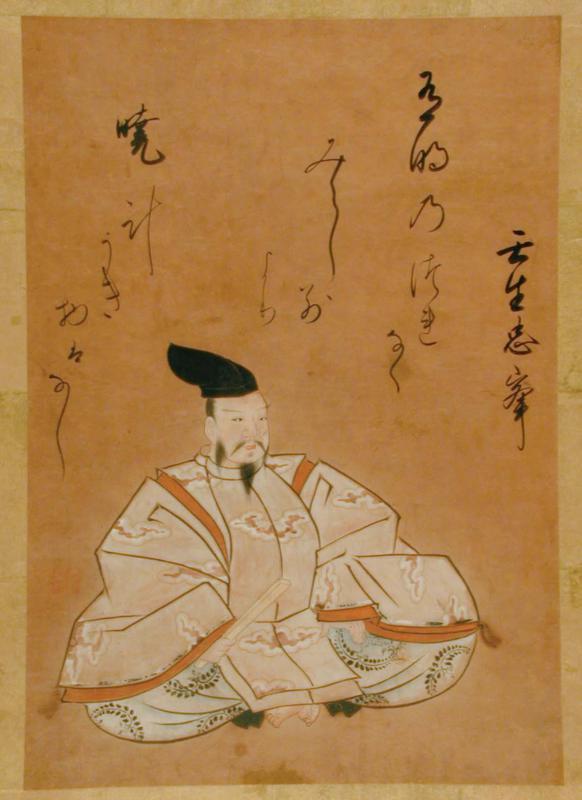 壬生忠峯
有明乃つれ
なく
みえし
別
より
暁
計
うき
物はなし